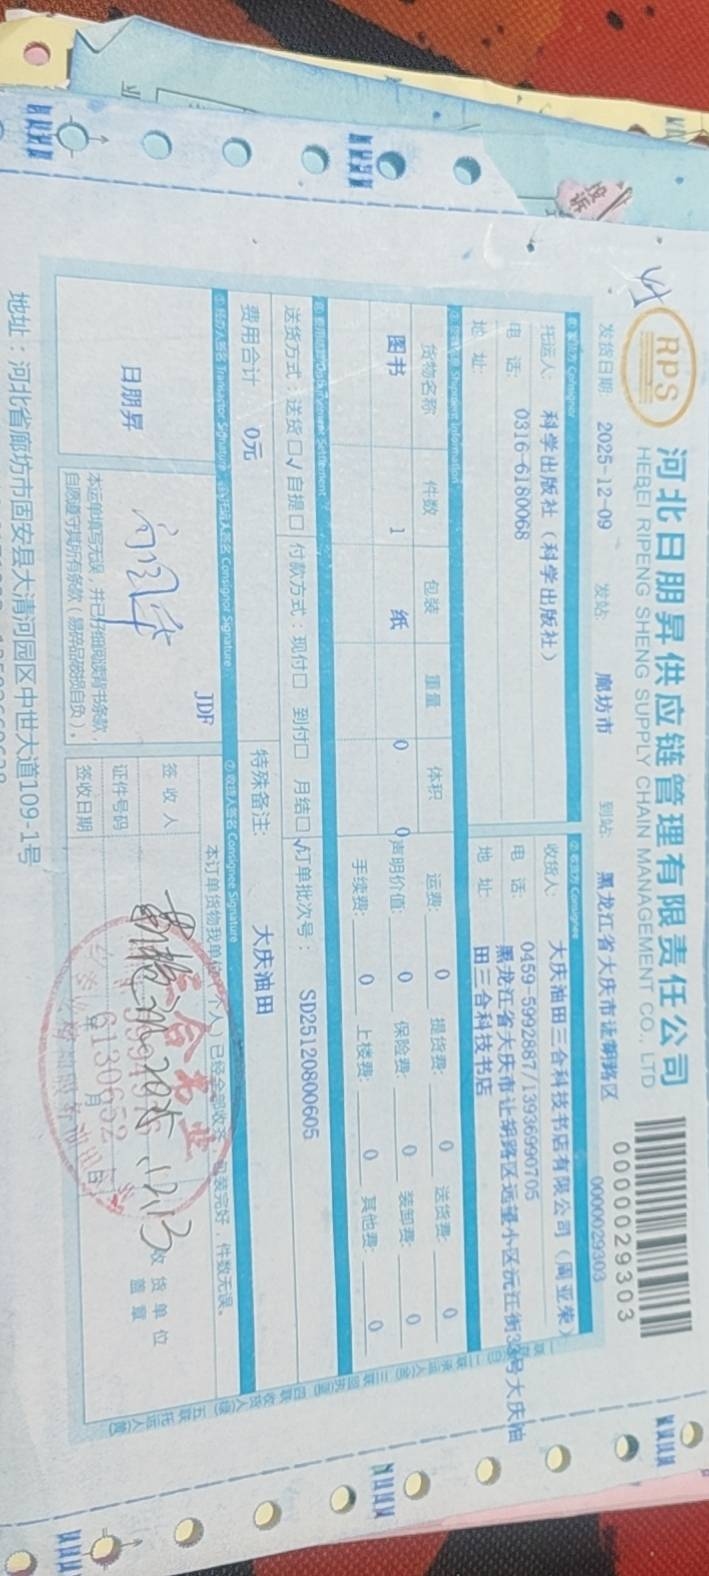 RPS
河北日朋昇供应链管理有限责任公司
HEBEI RIPENG SHENG SUPPLY CHAIN MANAGEMENT CO., LTD
0000029303
发货日期: 2025-12-09 发站: 廊坊市 到站: 黑龙江省大庆市让胡路区 0000029303
① 发货方 Consignor ② 收货方 Consignee
托运人: 科学出版社（科学出版社） 收货人: 大庆油田三合科技书店有限公司（周亚荣）
电 话: 0316-6180068 电 话: 0459-5992887/13936990705
地 址: 地 址: 黑龙江省大庆市让胡路区远望小区沅江街33号大庆油
田三合科技书店
③ 货物信息 Shipment Information
货物名称 件数 包装 重量 体积 运费: 0 提货费: 0 送货费: 0
图书 1 纸 0 0 声明价值: 0 保险费: 0 装卸费: 0
手续费: 0 上楼费: 0 其他费: 0
送货方式: 送货☐√ 自提☐ 付款方式: 现付☐ 到付☐ 月结☐√ 订单批次号: SD25120800605
费用合计 0元 特殊备注: 大庆油田
⑤ 经办人签名 Transactor Signature ⑥ 托运人签名 Consignor Signature ⑦ 收货人签名 Consignee Signature
日朋昇
JDF
本运单填写无误，并已仔细阅读背书条款，
自愿遵守其所有条款（易碎品破损自负）。
已经全部收齐，包装完好，件数无误。
签 收 人
证件号码
签收日期 月 日
收货单位
盖章
6130652
12.13
地址：河北省廊坊市固安县大清河园区中世大道109-1号
投诉